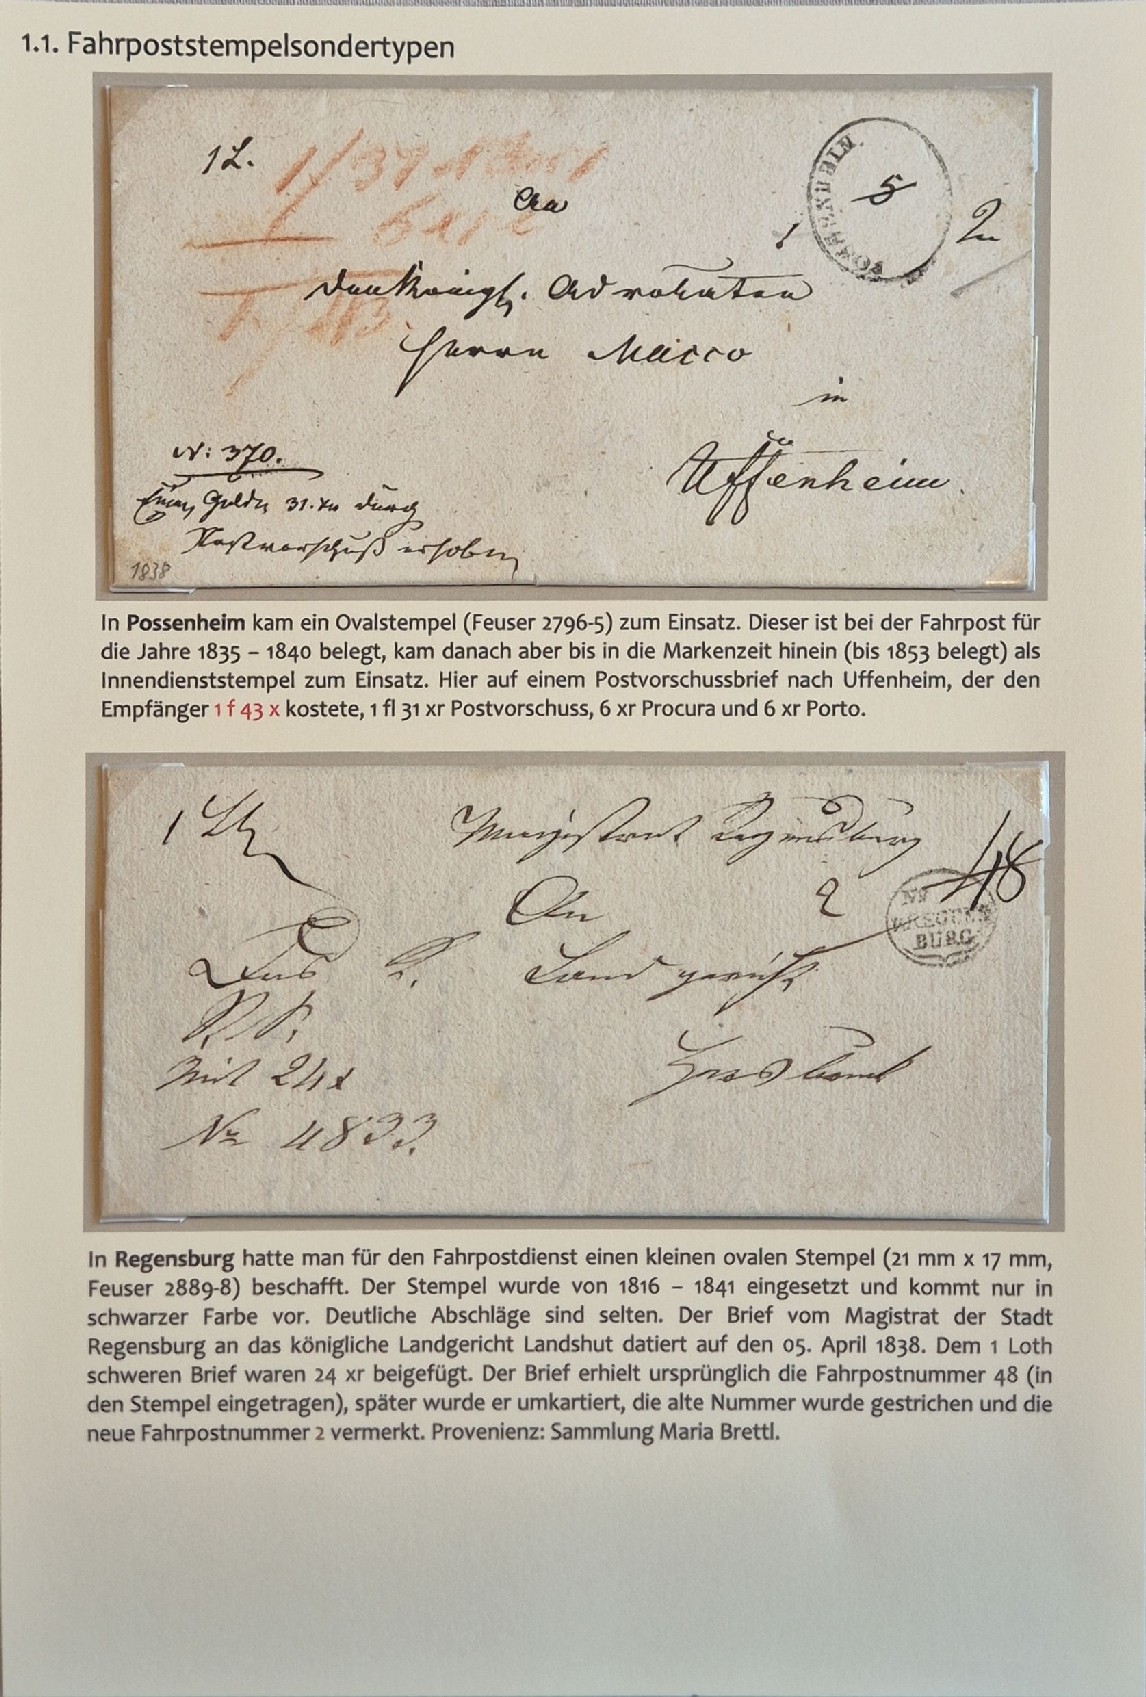 1.1. Fahrpoststempelsondertypen
1 L.
An
5
1
2
den Königl. Advokaten
Herrn Macco
in
Uffenheim.
N: 370.
Einen Gulden 31. xr durch
Postvorschuß erhoben
1838
In Possenheim kam ein Ovalstempel (Feuser 2796-5) zum Einsatz. Dieser ist bei der Fahrpost für
die Jahre 1835 – 1840 belegt, kam danach aber bis in die Markenzeit hinein (bis 1853 belegt) als
Innendienststempel zum Einsatz. Hier auf einem Postvorschussbrief nach Uffenheim, der den
Empfänger 1 f 43 x kostete, 1 fl 31 xr Postvorschuss, 6 xr Procura und 6 xr Porto.
1 Lth
Magistrat Regensburg
48
An
2
No
REGENS
BURG
Das K. Landgericht
Mit 24 x
Landshut
No 4833.
In Regensburg hatte man für den Fahrpostdienst einen kleinen ovalen Stempel (21 mm x 17 mm,
Feuser 2889-8) beschafft. Der Stempel wurde von 1816 – 1841 eingesetzt und kommt nur in
schwarzer Farbe vor. Deutliche Abschläge sind selten. Der Brief vom Magistrat der Stadt
Regensburg an das königliche Landgericht Landshut datiert auf den 05. April 1838. Dem 1 Loth
schweren Brief waren 24 xr beigefügt. Der Brief erhielt ursprünglich die Fahrpostnummer 48 (in
den Stempel eingetragen), später wurde er umkartiert, die alte Nummer wurde gestrichen und die
neue Fahrpostnummer 2 vermerkt. Provenienz: Sammlung Maria Brettl.